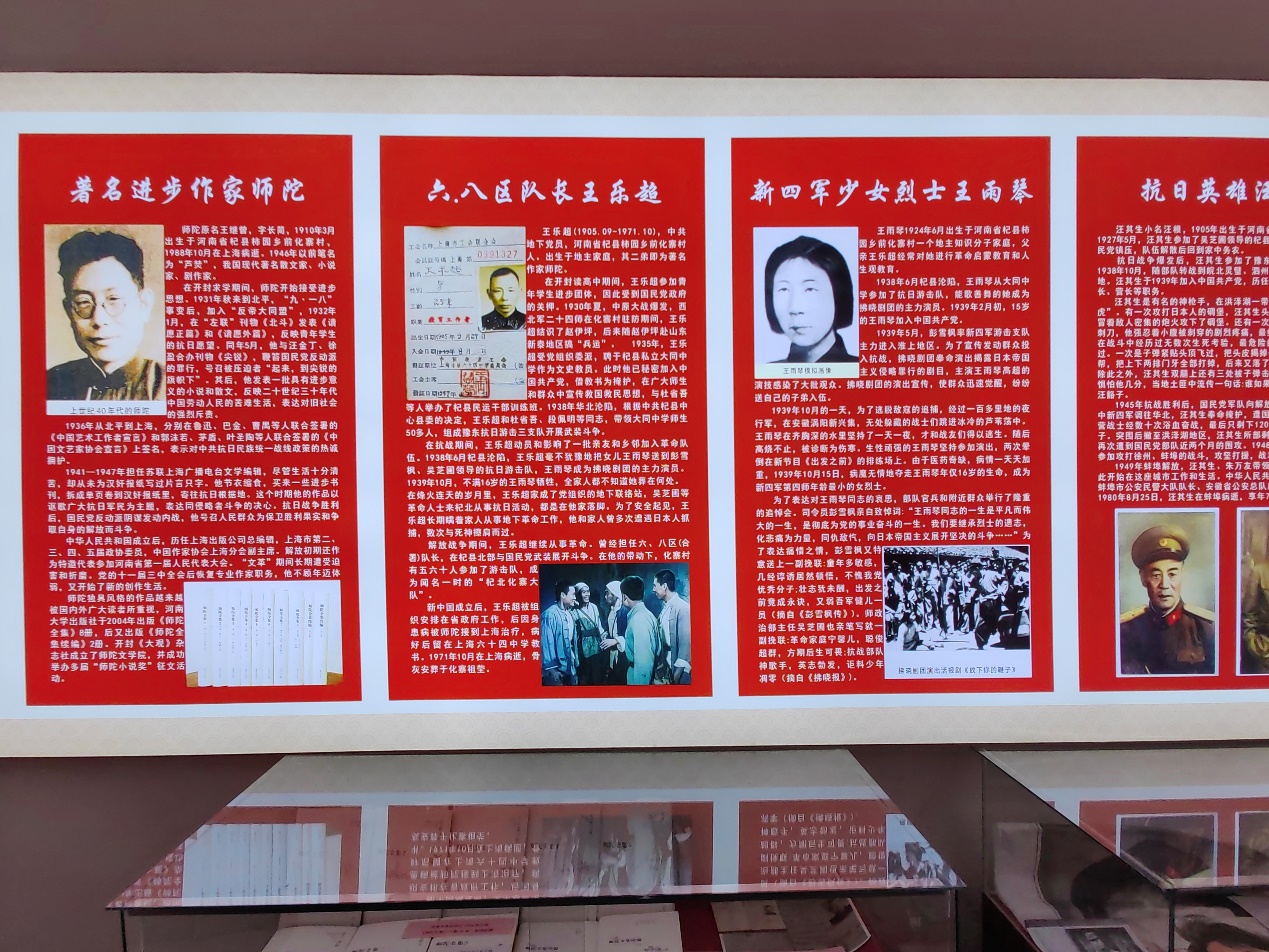 著名进步作家师陀
师陀原名王继曾，字长简，1910年3月
出生于河南省杞县柿园乡前化寨村，
1988年10月在上海病逝。1946年以前笔名
为“芦焚”，我国现代著名散文家、小说
家、剧作家。
在开封求学期间，师陀开始接受进步
思想。1931年秋来到北平，“九·一八”
事变后，加入“反帝大同盟”，1932年
1月，在“左联”刊物《北斗》发表《请
愿正篇》和《请愿外篇》，反映青年学生
的抗日愿望。同年5月，他与汪金丁、徐
盈合办刊物《尖锐》，鞭笞国民党反动派
的罪行，号召被压迫者“起来，到尖锐的
旗帜下”。其后，他发表一批具有进步意
义的小说和散文，反映二十世纪三十年代
中国劳动人民的苦难生活，表达对旧社会
的强烈斥责。
上世纪40年代的师陀
1936年从北平到上海，分别在鲁迅、巴金、曹禺等人联合签署的
《中国艺术工作者宣言》和郭沫若、茅盾、叶圣陶等人联合签署的《中
国文艺家协会宣言》上签名，表示对中共抗日民族统一战线政策的热诚
拥护。
1941—1947年担任苏联上海广播电台文学编辑，尽管生活十分清
苦，却从未为汉奸报纸写过片言只字。他节衣缩食，买来一些进步书
刊，拆成单页卷到汉奸报纸里，寄往抗日根据地。这个时期他的作品以
讴歌广大抗日军民为主题，表达同侵略者斗争的决心。抗日战争胜利
后，国民党反动派阴谋发动内战，他号召人民群众为保卫胜利果实和争
取自身的解放而斗争。
中华人民共和国成立后，历任上海出版公司总编辑，上海市第二、
三、四、五届政协委员，中国作家协会上海分会副主席。解放初期还作
为特邀代表参加河南省第一届人民代表大会。“文革”期间长期遭受迫
害和折磨。党的十一届三中全会后恢复专业作家职务，他不顾年迈体
弱，又开始了新的创作生活。
师陀独具风格的作品越来越
被国内外广大读者所重视，河南
大学出版社于2004年出版《师陀
全集》8册，后又出版《师陀全
集续编》2册。开封《大观》杂
志社成立了师陀文学院，并成功
举办多届“师陀小说奖”征文活
动。
六、八区队长王乐超
王乐超（1905.09-1971.10），中共
地下党员，河南省杞县柿园乡前化寨村
人，出生于地主家庭，其二弟即为著名
作家师陀。
在开封读高中期间，王乐超参加青
年学生进步团体，因此受到国民党政府
的关押。1930年夏，中原大战爆发，西
北军二十四师在化寨村驻防期间，王乐
超结识了赵伊坪，后来随赵伊坪赴山东
新泰地区搞“兵运”。 1935年，王乐
超受党组织委派，聘于杞县私立大同中
学作为文史教员，此时他已秘密加入中
国共产党，借教书为掩护，在广大师生
和群众中宣传救国救民思想，与杜省吾
0391327
教育工作者
等人举办了杞县民运干部训练班。1938年华北沦陷，根据中共杞县中
心县委的决定，王乐超和杜省吾、段佩明等同志，带领大同中学师生
50多人，组成豫东抗日游击三支队开展武装斗争。
在抗战期间，王乐超动员和影响了一批亲友和乡邻加入革命队
伍。1938年6月杞县沦陷，王乐超毫不犹豫地把女儿王雨琴送到彭雪
枫、吴芝圃领导的抗日游击队，王雨琴成为拂晓剧团的主力演员。
1939年10月，不满16岁的王雨琴牺牲，全家人都不知道她葬在何处。
在烽火连天的岁月里，王乐超家成了党组织的地下联络站，吴芝圃等
革命人士来杞北从事抗日活动，都是在他家落脚。为了安全起见，王乐
超长期瞒着家人从事地下革命工作，他和家人曾多次遭遇日本人抓
捕，数次与死神擦肩而过。
解放战争期间，王乐超继续从事革命。曾经担任六、八区（合
署）队长，在杞县北部与国民党武装展开斗争。在他的带动下，化寨村
有五六十人参加了游击队，成
为闻名一时的“杞北化寨大
队”。
新中国成立后，王乐超被组
织安排在省政府工作，后因身
患病被师陀接到上海治疗，病
好后留在上海六十四中学教
书。1971年10月在上海病逝，骨
灰安葬于化寨祖茔。
新四军少女烈士王雨琴
王雨琴1924年6月出生于河南省杞县柿
园乡前化寨村一个地主知识分子家庭，父
亲王乐超经常对她进行革命启蒙教育和人
生观教育。
1938年6月杞县沦陷，王雨琴从大同中
学参加了抗日游击队，能歌善舞的她成为
拂晓剧团的主力演员。1939年2月初，15岁
的王雨琴加入中国共产党。
1939年5月，彭雪枫率新四军游击支队
主力进入淮上地区。为了宣传发动群众投
入抗战，拂晓剧团奉命演出揭露日本帝国
主义侵略罪行的剧目，主演王雨琴高超的
王雨琴模拟画像
演技感染了大批观众。拂晓剧团的演出宣传，使群众迅速觉醒，纷纷
送自己的子弟入伍。
1939年10月的一天，为了逃脱敌寇的追捕，经过一百多里地的夜
行军，在安徽涡阳新兴集，无处躲藏的战士们跳进冰冷的芦苇荡中。
王雨琴在齐胸深的水里坚持了一天一夜，才和战友们得以逃生。随后
高烧不止，被诊断为伤寒。生性顽强的王雨琴坚持参加演出，两次晕
倒在新节目《出发之前》的排练场上。由于医药奇缺，病情一天天加
重，1939年10月15日，病魔无情地夺走王雨琴年仅16岁的生命，成为
新四军第四师年龄最小的女烈士。
为了表达对王雨琴同志的哀思，部队官兵和附近群众举行了隆重
的追悼会。司令员彭雪枫亲自致悼词：“王雨琴同志的一生是平凡而伟
大的一生，是彻底为党的事业奋斗的一生。我们要继承烈士的遗志，
化悲痛为力量，同仇敌忾，向日本帝国主义展开坚决的斗争……”为
了表达痛惜之情，彭雪枫又特
意送上一副挽联：童年多敏感，
几经谆诱居然顿悟，不愧我党
优秀分子；壮志犹未酬，出发之
前竟成永诀，又弱吾军健儿一
员（摘自《彭雪枫传》）。师政
治部主任吴芝圃也亲笔写就一
副挽联：革命家庭宁馨儿，聪俊
超群，方期后生可畏；抗战部队
神歌手，英志勃发，讵料少年
凋零（摘自《拂晓报》）。
拂晓剧团演出活报剧《放下你的鞭子》
抗日英雄汪
汪其生小名汪根，1905年出生于河南省
1927年5月，汪其生参加了吴芝圃领导的杞县
民党镇压，队伍解散后回到家中务农。
抗日战争爆发后，汪其生参加了豫东
1938年10月，随部队转战到皖北灵璧、泗州
地，汪其生于1939年加入中国共产党，历任
长、营长等职务。
汪其生是有名的神枪手，在洪泽湖一带